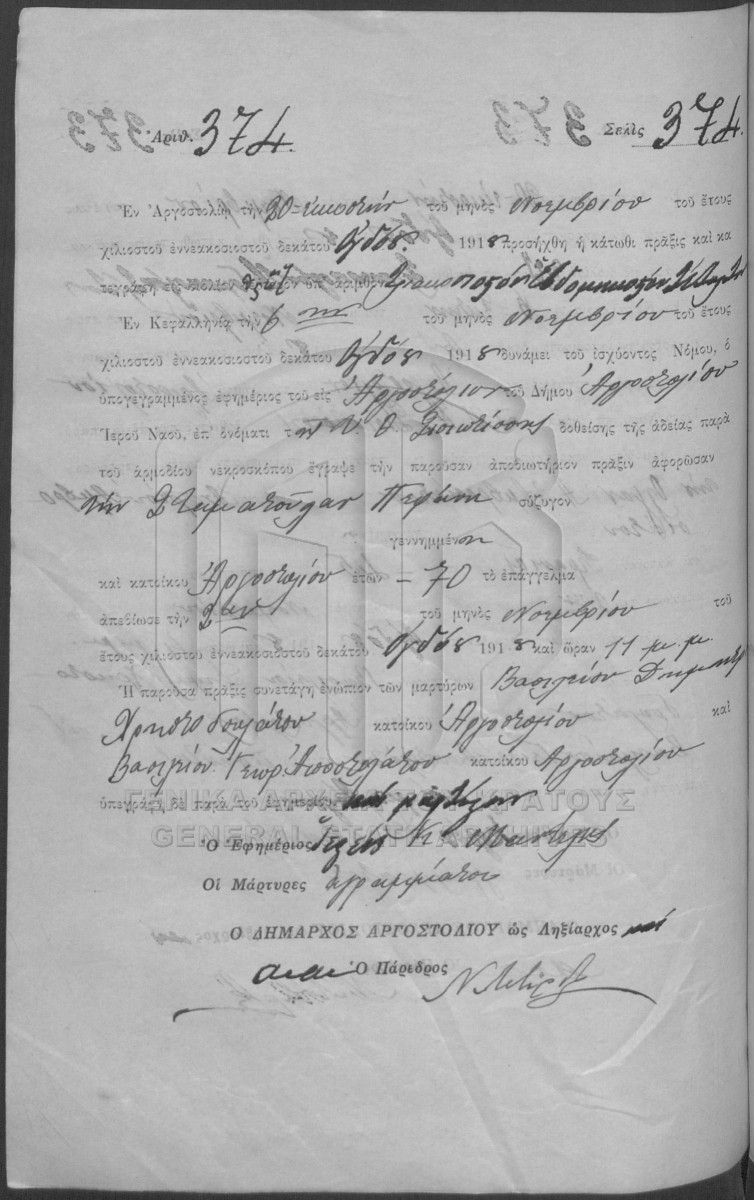 Ἀριθ. 374. Σελὶς 374.
Ἐν Ἀργοστολίῳ τὴν 20 = εἰκοστὴν τοῦ μηνὸς Νοεμβρίου τοῦ ἔτους
χιλιοστοῦ ἐννεακοσιοστοῦ δεκάτου Ὀγδόου 1918 προσήχθη ἡ κάτωθι πρᾶξις καὶ κα
τεγράφη εἰς βιβλίον ὑπ' ἀριθμὸν Τριακοσιοστὸν Ἑβδομηκοστὸν Τέταρτον
Ἐν Κεφαλληνίᾳ τὴν 6 τοῦ μηνὸς Νοεμβρίου τοῦ ἔτους
χιλιοστοῦ ἐννεακοσιοστοῦ δεκάτου Ὀγδόου 1918 δυνάμει τοῦ ἰσχύοντος Νόμου, ὁ
ὑπογεγραμμένος ἐφημέριος τοῦ εἰς Ἀργοστόλιον τοῦ Δήμου Ἀργοστολίου
Ἱεροῦ Ναοῦ, ἐπ' ὀνόματι τῆς Υ. Θ. Σισιωτίσσης δοθείσης τῆς ἀδείας παρὰ
τοῦ ἁρμοδίου νεκροσκόπου ἔγραψε τὴν παροῦσαν ἀποβιωτήριον πρᾶξιν ἀφορῶσαν
τὴν Σταματούλαν σύζυγον
γεννημμένην
καὶ κατοίκου Ἀργοστολίου ἐτῶν – 70 τὸ ἐπάγγελμα
ἀπεβίωσε τὴν τοῦ μηνὸς Νοεμβρίου τοῦ
ἔτους χιλιοστοῦ ἐννεακοσιοστοῦ δεκάτου Ὀγδόου 1918 καὶ ὥραν 11 μ. μ.
Ἡ παροῦσα πρᾶξις συνετάγη ἐνώπιον τῶν μαρτύρων Βασιλείου Δημητρ
Χρηστοδουλάτου κατοίκου Ἀργοστολίου καὶ
Βασιλείου Γεωρ. Ἀποστολάτου κατοίκου Ἀργοστολίου
ὑπεγράφη δὲ παρὰ τοῦ ἐφημερίου καὶ μαρτύρων
ΓΕΝΙΚΑ ΑΡΧΕΙΑ ΤΟΥ ΚΡΑΤΟΥΣ
GENERAL STATE ARCHIVES
Ὁ Ἐφημέριος
Οἱ Μάρτυρες ἀγράμματοι
Ο ΔΗΜΑΡΧΟΣ ΑΡΓΟΣΤΟΛΙΟΥ ὡς Ληξίαρχος
Ὁ Πάρεδρος